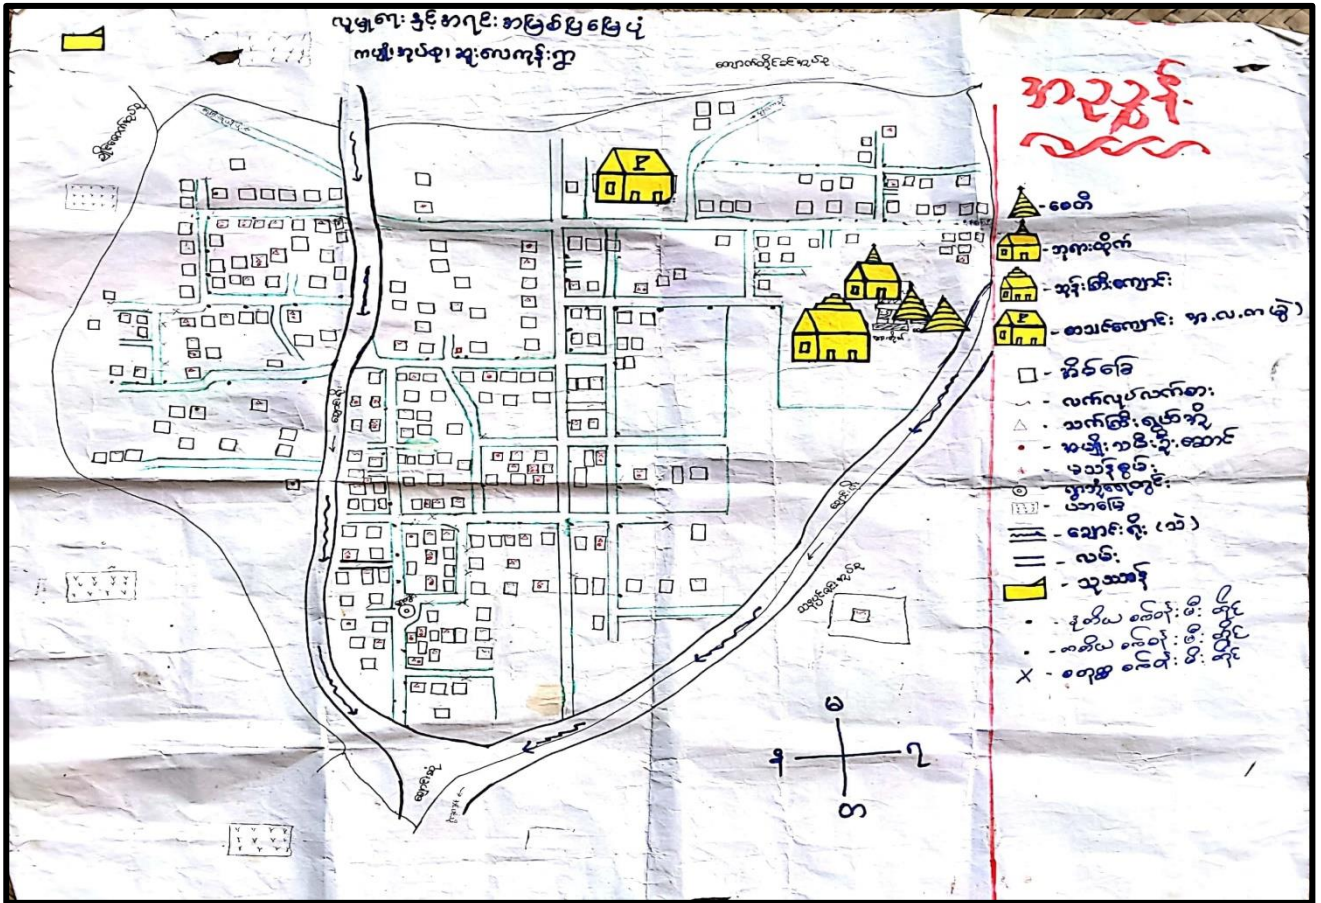 လူမှုရေးနှင့်အရင်းအမြစ်ပြမြေပုံ
ကမျိုးအုပ်စု၊ ဆူးလေကုန်းရွာ
အညွှန်း
- စေတီ
- ဘုရားထိုက်
- ဘုန်းကြီးကျောင်း
- စာသင်ကျောင်း အ.လ.က (ခွဲ)
- အိမ်ခြေ
- လက်လုပ်လက်စား
- သက်ကြီးရွယ်အို
- အမျိုးသမီးဦးဆောင်
- မသန်စွမ်း
- ရွာဘုံရေတွင်း
- ယာမြေ
- ချောင်းရိုး (သဲ)
- လမ်း
- သုသာန်
- ဒုတိယ စက်ဝန်း မီးတိုင်
- တတိယ စက်ဝန်း မီးတိုင်
× - စတုတ္ထ စက်ဝန်း မီးတိုင်
မ
န
ဥ
တ